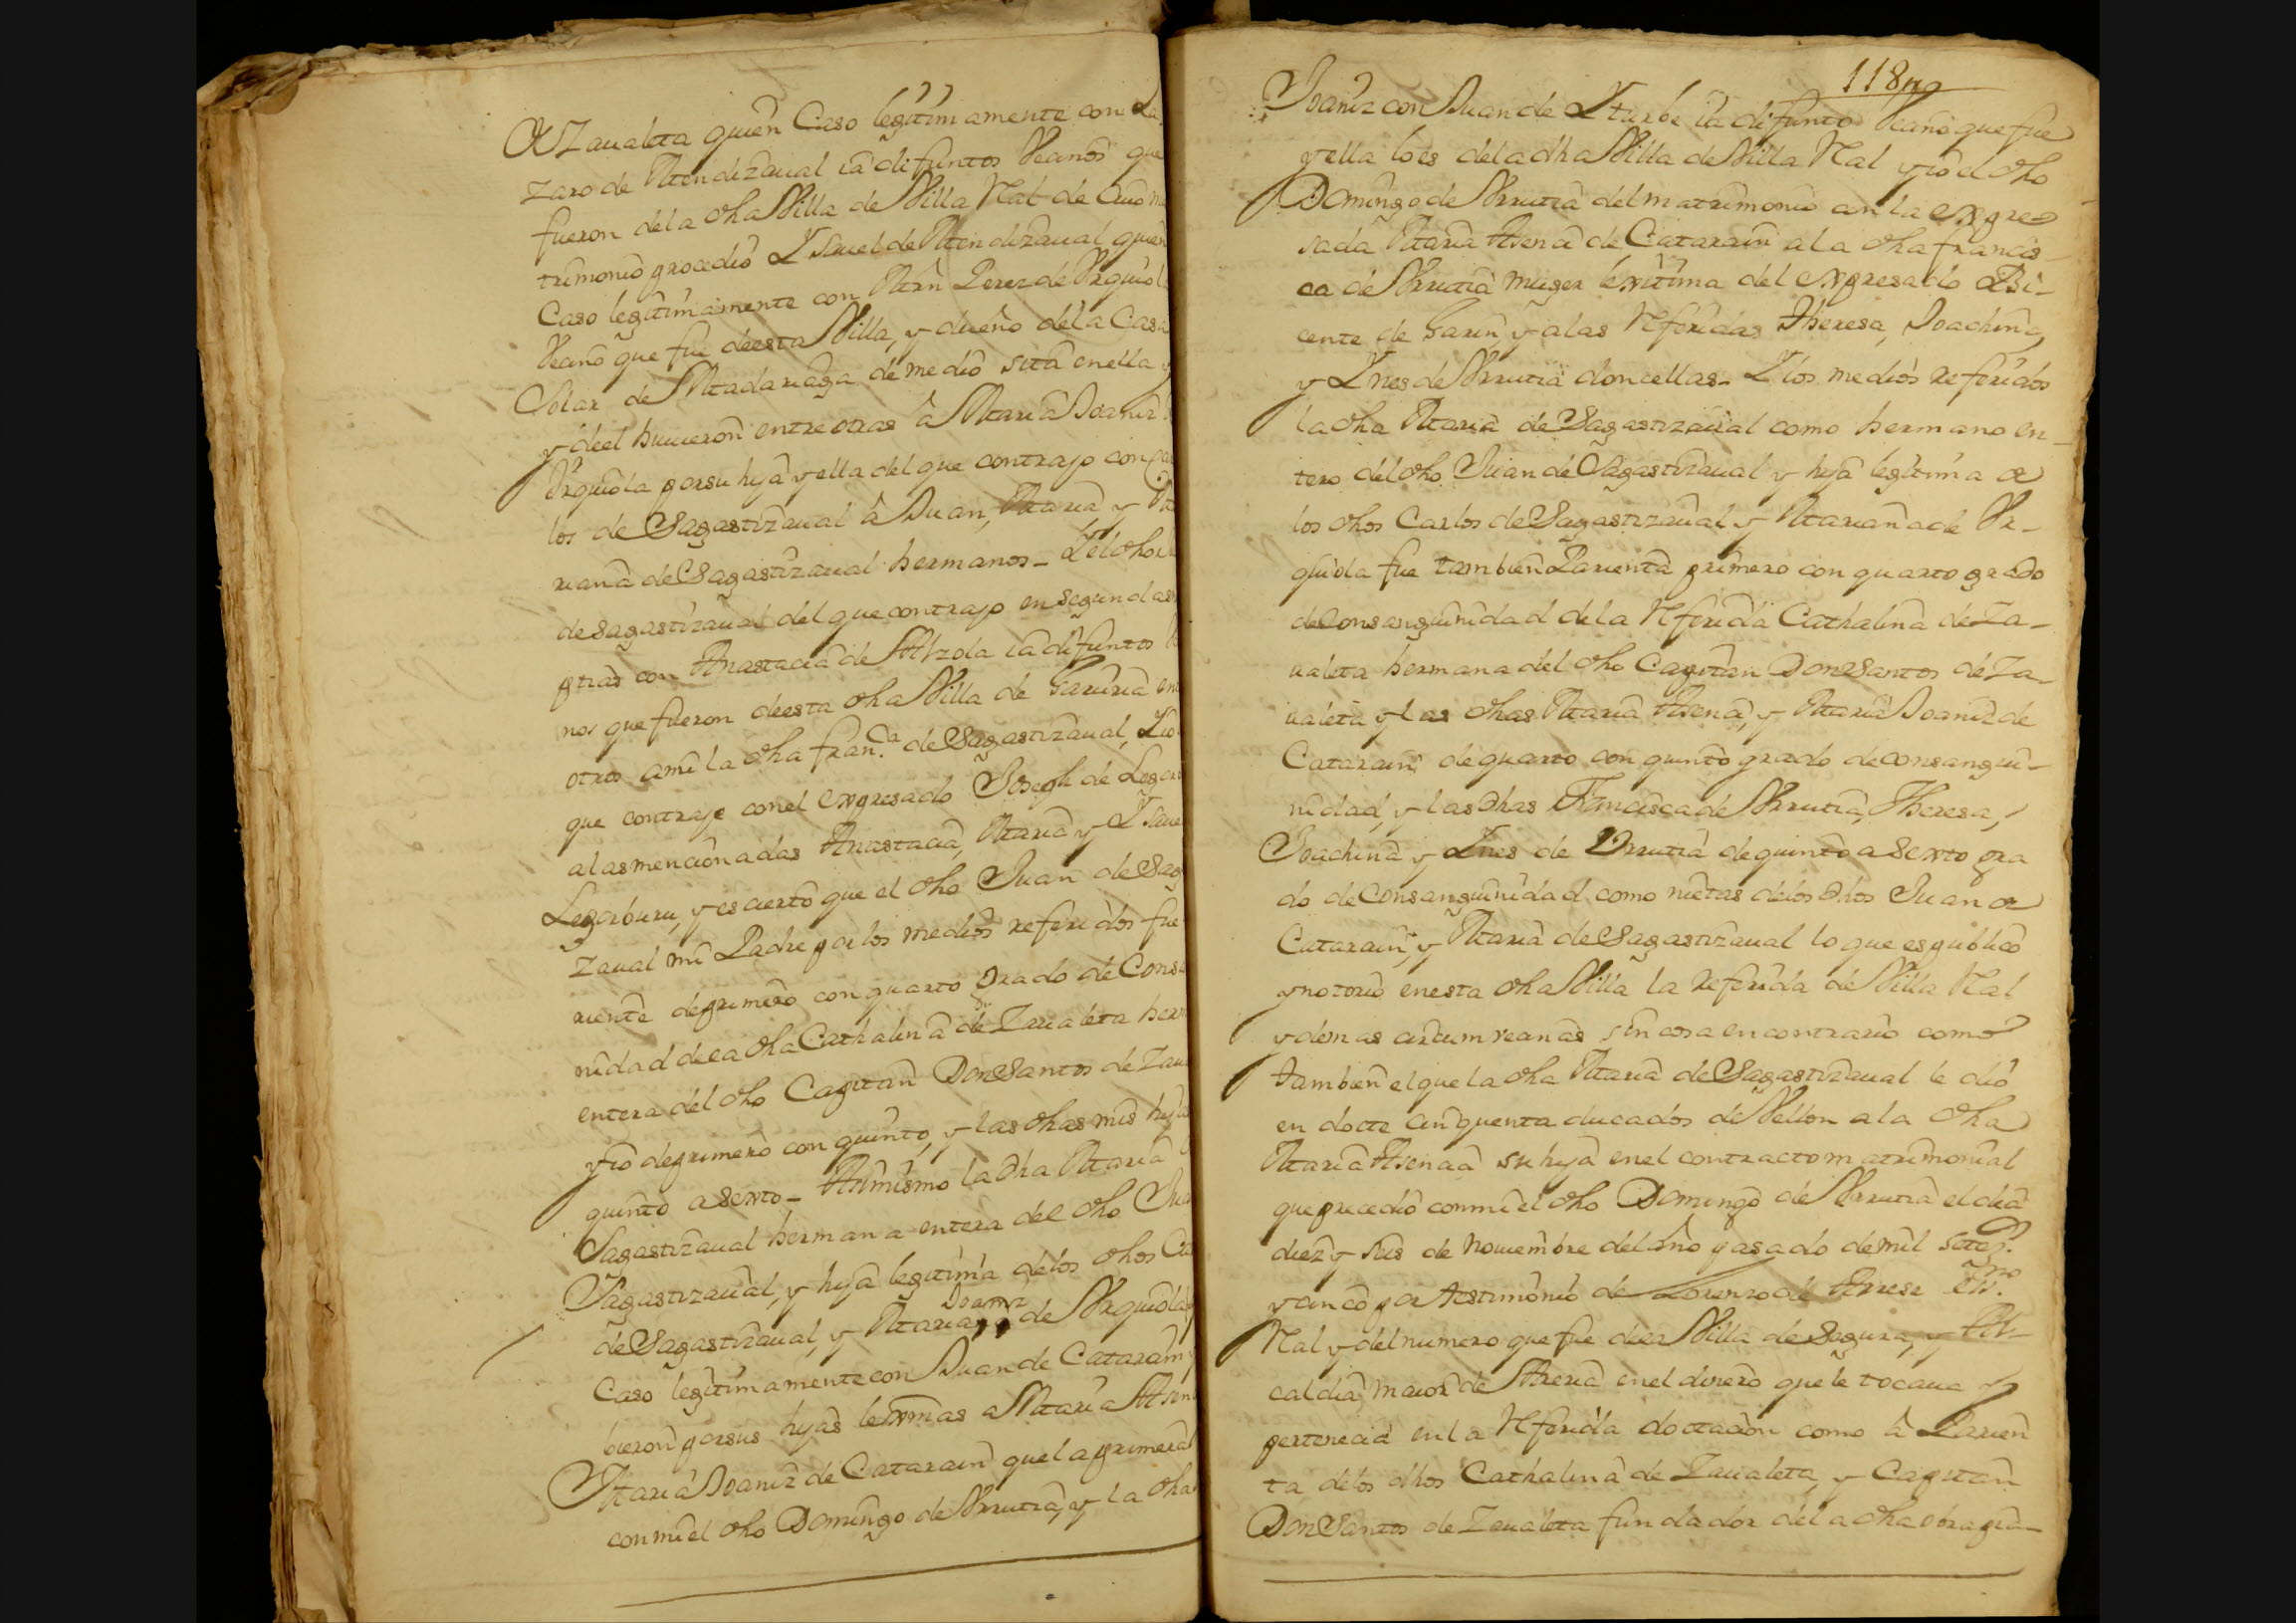 de Zaualeta quien Caso legitimamente con La
zaro de Mendizaual ia difuntos Vecinos que
fueron de la dha Villa de Villa Real de Cuio m
trimonio procedió Ysauel de Mendizaual quien
Caso legitimamente con Mrn Perez de Vrquiola
Vecino que fue de esta Villa, y dueño de la Casa
Solar de Madariaga de medio sita en ella y
y de el huuieron entre otras a Maria Joaniz
Vrquiola por su hija y ella del que contrajo con Car
los de Sagastizaual a Juan, Maria y Ma
riana de Sagastizaual hermanos - Y el dho
de Sagastizaual del que contrajo en segundas
pcias con Anastacia de Alzola ia difuntos
nos que fueron de esta dha Villa de Gauiria en
otros a mi la dha fran.ca de Sagastizaual, Y io
que contraje con el expresado Joseph de Legor
a las mencionadas Anastacia, Maria y Ysaue
Legorburu, y es cierto que el dho Juan de Sag
zaual mi Padre por los medios referidos fue
riente de primero con quarto grado de Consa
nidad de la dha Cathalina de Zaualeta herm
entera del dho Capitan Don Santos de Zau
y io de primero con quinto, y las dhas mis hijas
quinto a sexto - Asimismo la dha Maria
Sagastizaual hermana entera del dho Jua
Sagastizaual, y hija legitima de los dhos Ca
de Sagastizaual, y Mariana Joaniz de Vrquiola
Caso legitimamente con Juan de Catarain
bieron por sus hijas lexmas a Maria Asen
Maria Joaniz de Catarain que la primera
con mi el dho Domingo de Vrrutia, y la dha
118
Joaniz con Juan de Yturbe ia difunto Vecino que fue
y ella lo es de la dha Villa de Villa Real y io el dho
Domingo de Vrrutia del matrimonio con la expre
sada Maria Asencia de Catarain a la dha francis
ca de Vrrutia muger lexitima del expresado Vi-
cente de Garin y a las Referidas Theresa, Joachina,
y Ynes de Vrrutia doncellas - Y los medios referidos
la dha Maria de Sagastizaual como hermano en-
tero del dho Juan de Sagastizaual y hija legitima de
los dhos Carlos de Sagastizaual y Mariana de Vr-
quiola fue tambien Parienta primero con quarto grado
de Consanguinidad de la Referida Cathalina de Za-
ualeta hermana del dho Capitan Don Santos de Za-
ualeta y las dhas Maria Asencia, y Maria Joaniz de
Catarain de quarto con quinto grado de consangui-
nidad, y las dhas Francisca de Vrrutia, Theresa,
Joachina y Ynes de Vrrutia de quinto a sexto gra
do de Consanguinidad como nietas de los dhos Juan de
Catarain, y Maria de Sagastizaual lo que es publico
y notorio en esta dha Villa la referida de Villa Real
y demas circumvecinas sin cosa en contrario como
tambien el que la dha Maria de Sagastizaual le dio
en docte cinquenta ducados de Vellon a la dha
Maria Asencia su hija en el contracto matrimonial
que precedio con mi el dho Domingo de Vrrutia el dia
diez y seis de Nouiembre del año pasado de mil setez.
y cinco por testimonio de Lorenzo de Arrese ess.no
Real y del numero que fue de la Villa de Segura, y Al-
caldia maior de Areria en el dinero que le tocaua y
pertenecia en la Referida doctacion como a Parien
ta de los dhos Cathalina de Zaualeta, y Capitan
Don Santos de Zaualeta fundador de la dha obra pia-